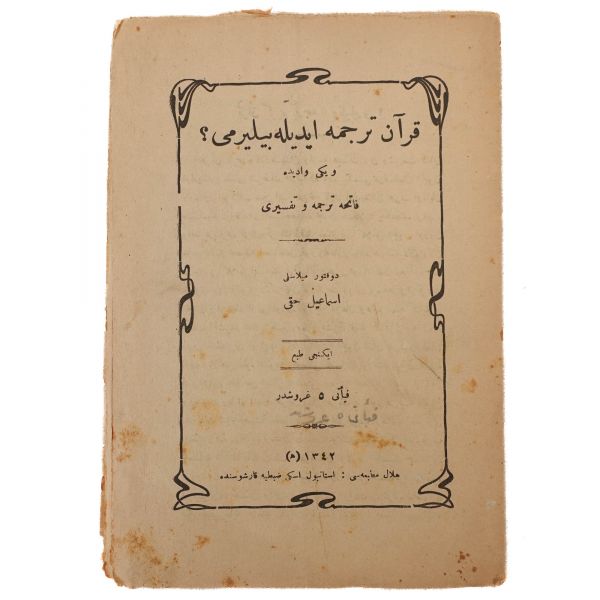 قرآن ترجمه ایدیله بیلیرمی ؟
و یکی وادیده
فاتحه ترجمه و تفسیری
دوقتور میلاسلی
اسماعیل حقی
ایکنجی طبع
فیأتی ۵ غروشدر
فیأتی ۵ غروشدر
۱۳٤۲ (ﻫ)
هلال مطبعه‌سی : استانبول اسکی ضبطیه قارشوسنده